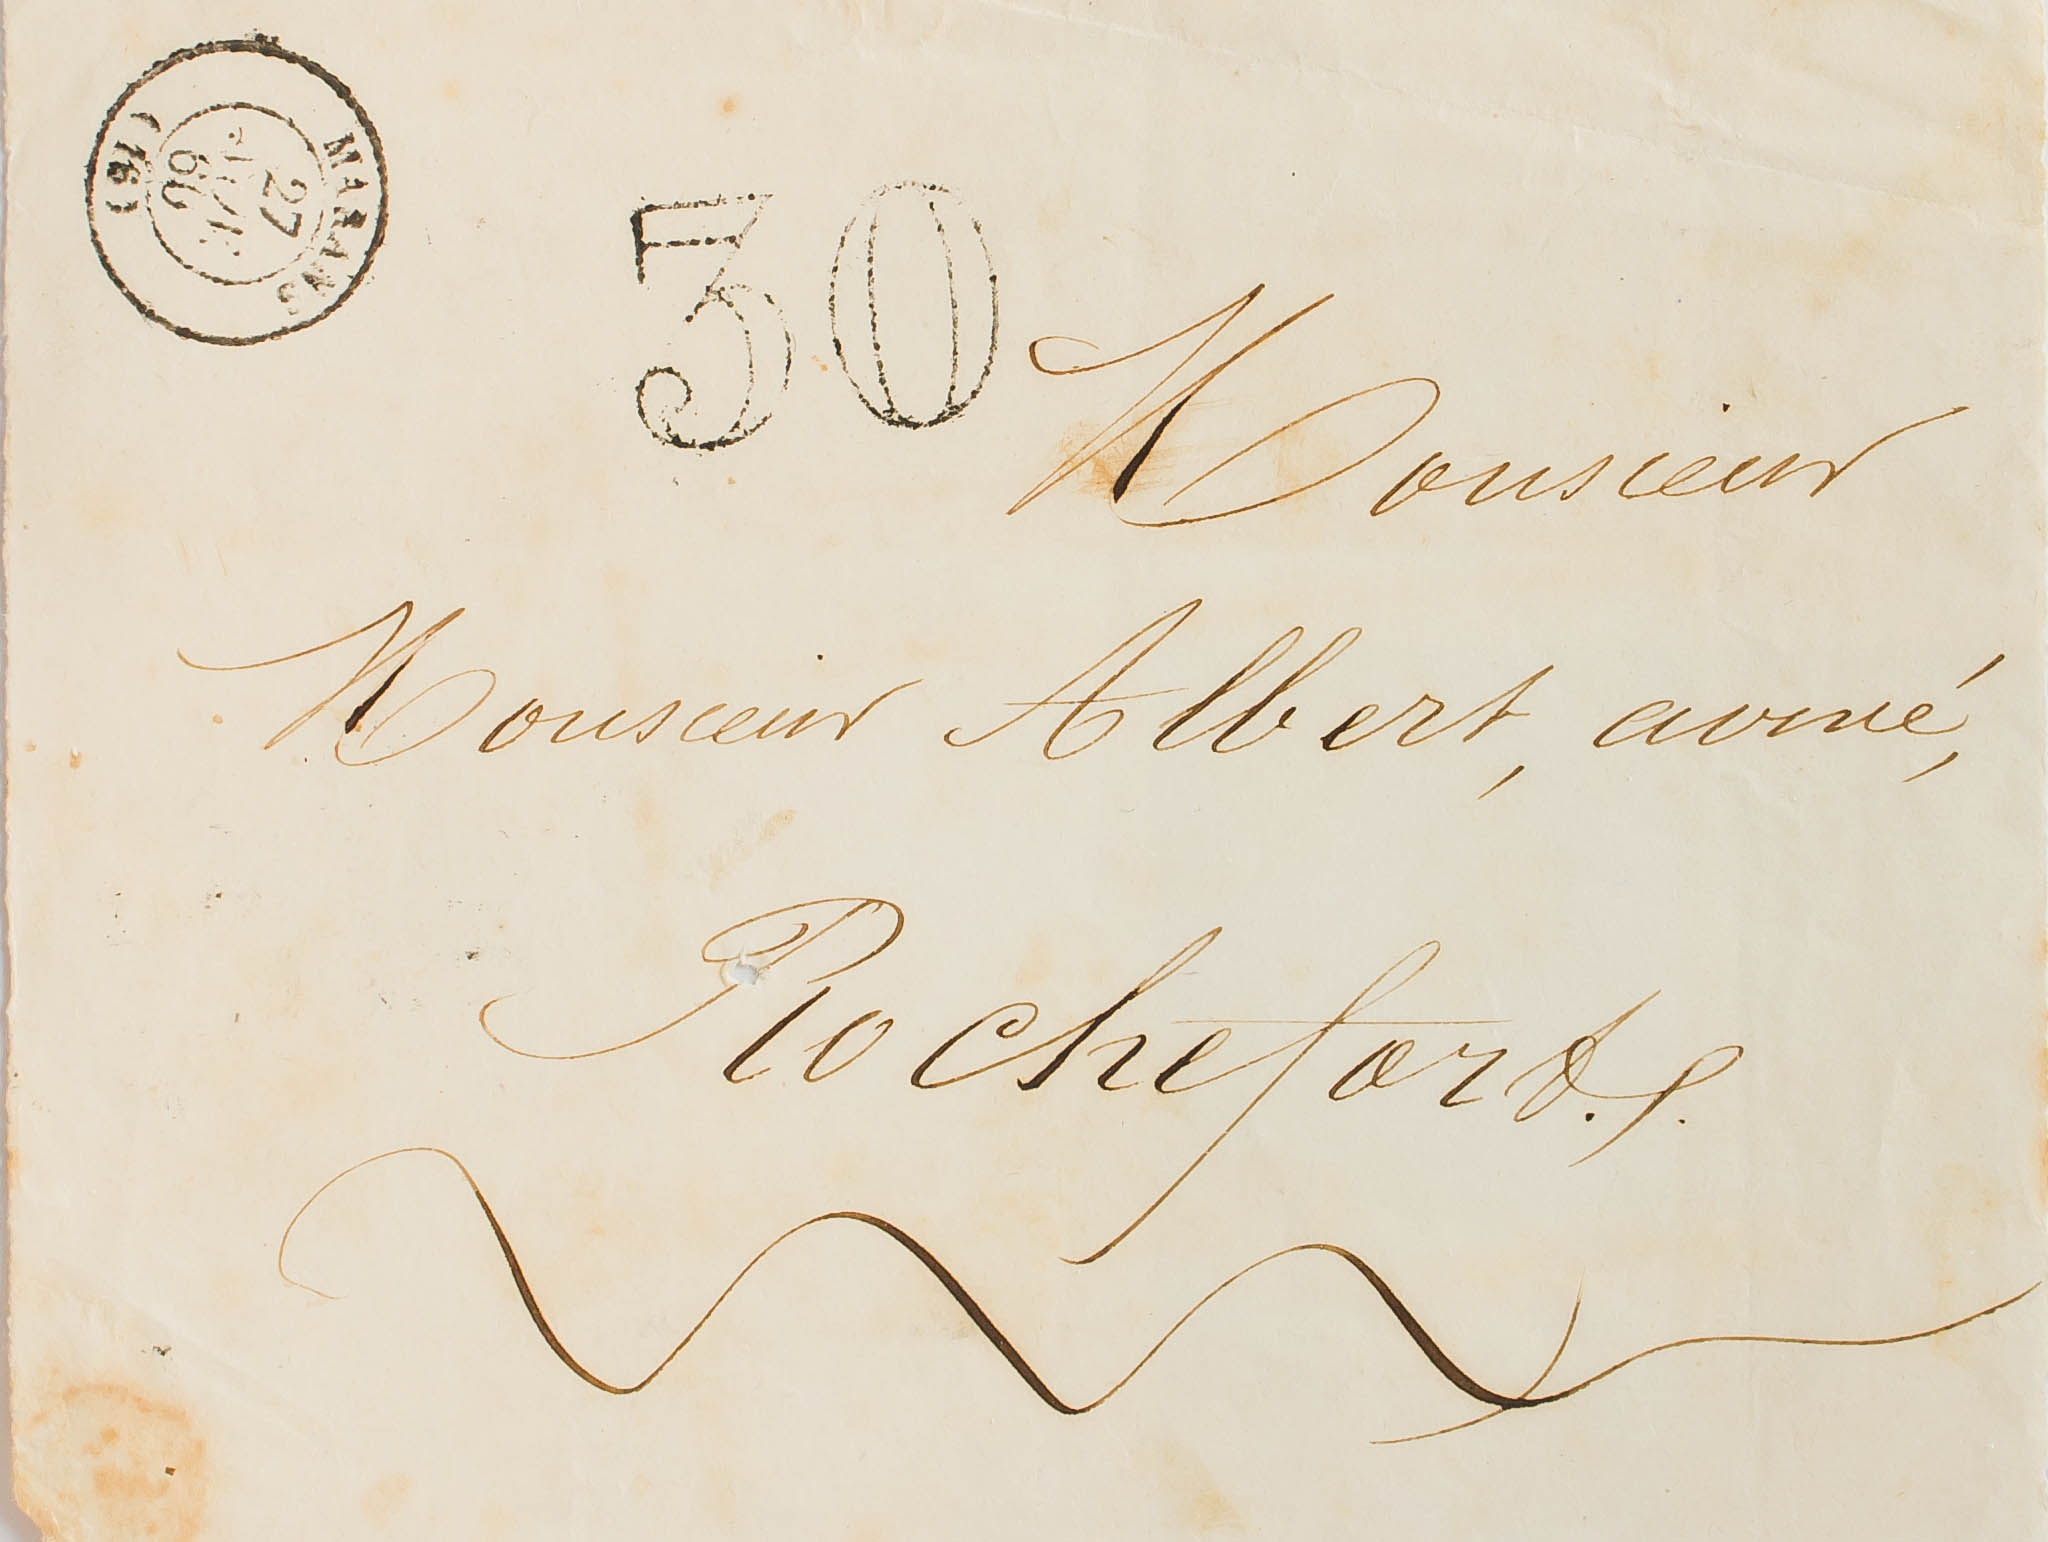 MARANS
(16)
27
60
30
Monsieur
Monsieur Albert, avoué,
Rochefort. s.